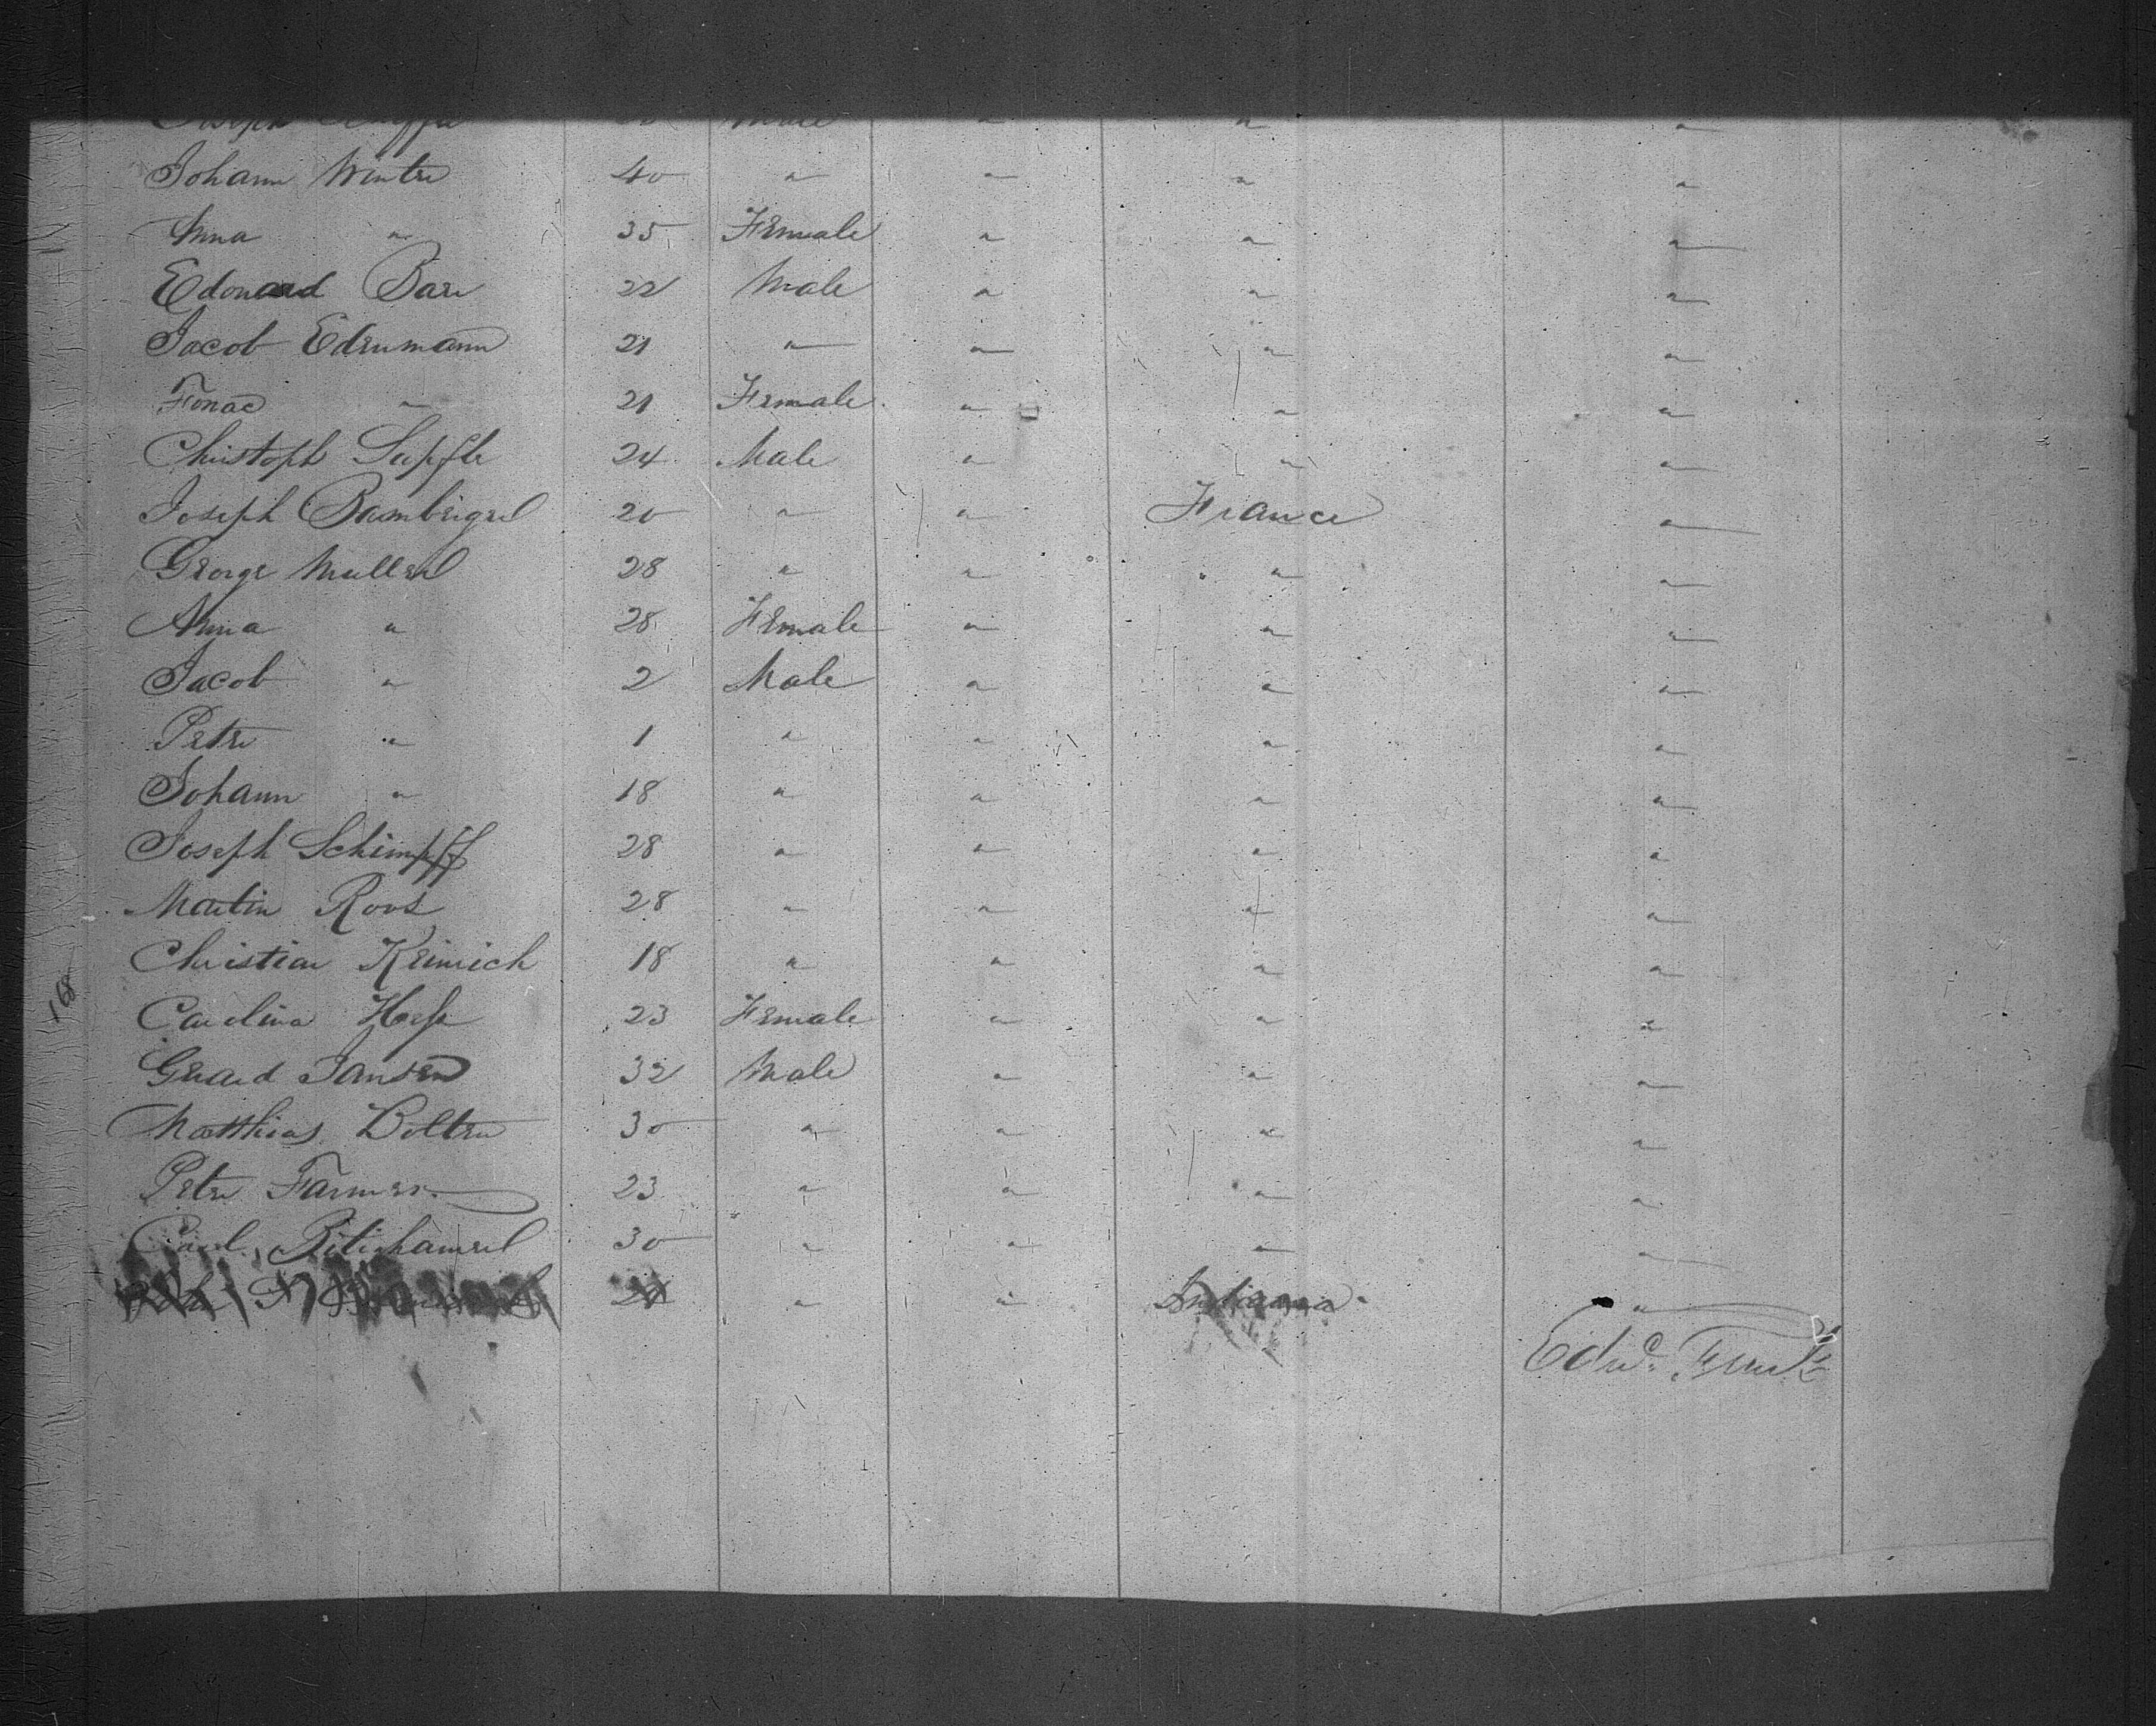 Joseph Male " " "
Johann Winter 40 " " " "
Anna " 35 Female " " "
Edouard Bare 22 Male " " "
Jacob Edenmann 21 " " " "
" 21 Female " " "
Christoph 24 Male " " "
Joseph 20 " " France "
George Muller 28 " " " "
Anna " 28 Female " " "
Jacob " 2 Male " " "
Peter " 1 " " " "
Johann " 18 " " " "
Joseph Schimpff 28 " " " "
Martin Roos 28 " " " "
Christian Heinrich 18 " " " "
Carolina 23 Female " " "
Gerard Jansen 32 Male " " "
Matthias Bolten 30 " " " "
Peter Farmer 23 " " " "
Carl 30 " " " "
" " Indiana "
Edwd.
168